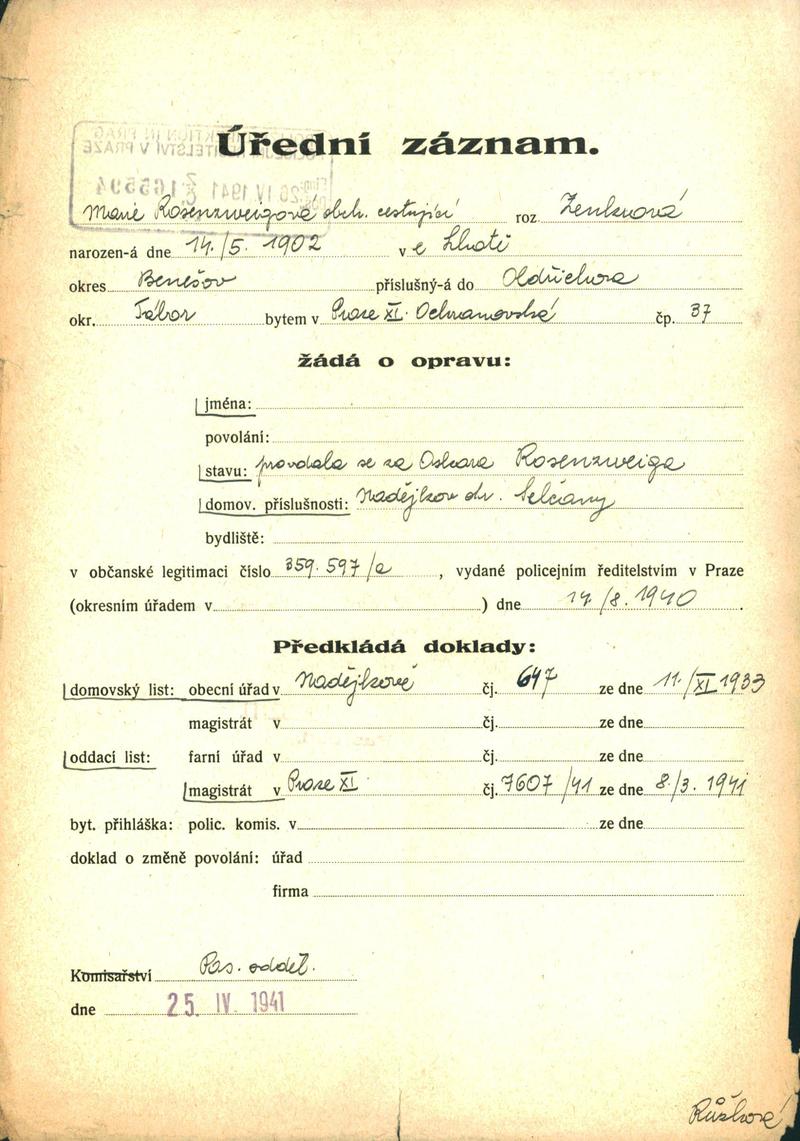 Úřední záznam.
Marie Rosenzweigová obch. cestující roz Zenknová
narozen-á dne 14./5. 1902 v e Lhotě
okres Benešov příslušný-á do Oldřichova
okr. Tábor bytem v Praze XI. Ochranovská čp. 37
žádá o opravu:
jména:
povolání:
stavu: provdala se za Oskara Rosenzweiga
domov. příslušnosti: Nadějkov okr. Selčany
bydliště:
v občanské legitimaci číslo 359.597/a , vydané policejním ředitelstvím v Praze
(okresním úřadem v ) dne 14./8. 1940 .
Předkládá doklady:
domovský list: obecní úřad v Nadějkově čj. 647 ze dne 11./XI 1933
magistrát v čj. ze dne
oddací list: farní úřad v čj. ze dne
magistrát v Praze XI čj. 7607/41 ze dne 8./3. 1941
byt. přihláška: polic. komis. v ze dne
doklad o změně povolání: úřad
firma
Komisařství Pas. odděl.
dne 25. IV. 1941